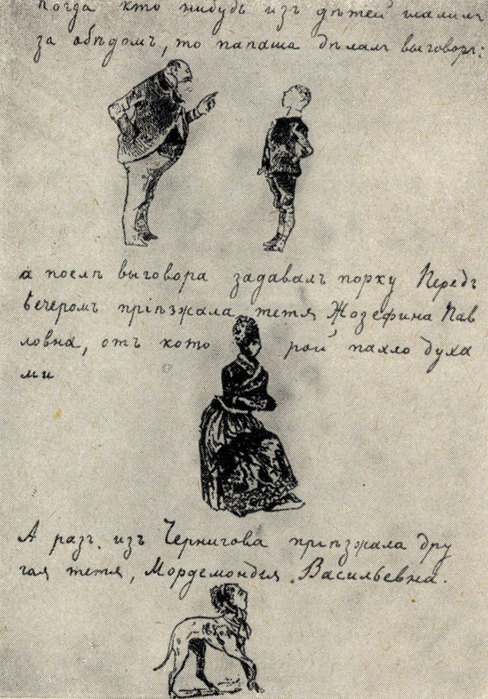 Когда кто нибудь изъ дѣтей шалилъ
за обѣдомъ, то папаша дѣлалъ выговоръ:
а послѣ выговора задавалъ порку Передъ
вечеромъ пріѣзжала тетя Жозефина Пав
ловна, отъ кото рой пахло духа
ми
А разъ изъ Чернигова пріѣзжала дру
гая тетя, Мордемондія Васильевна.